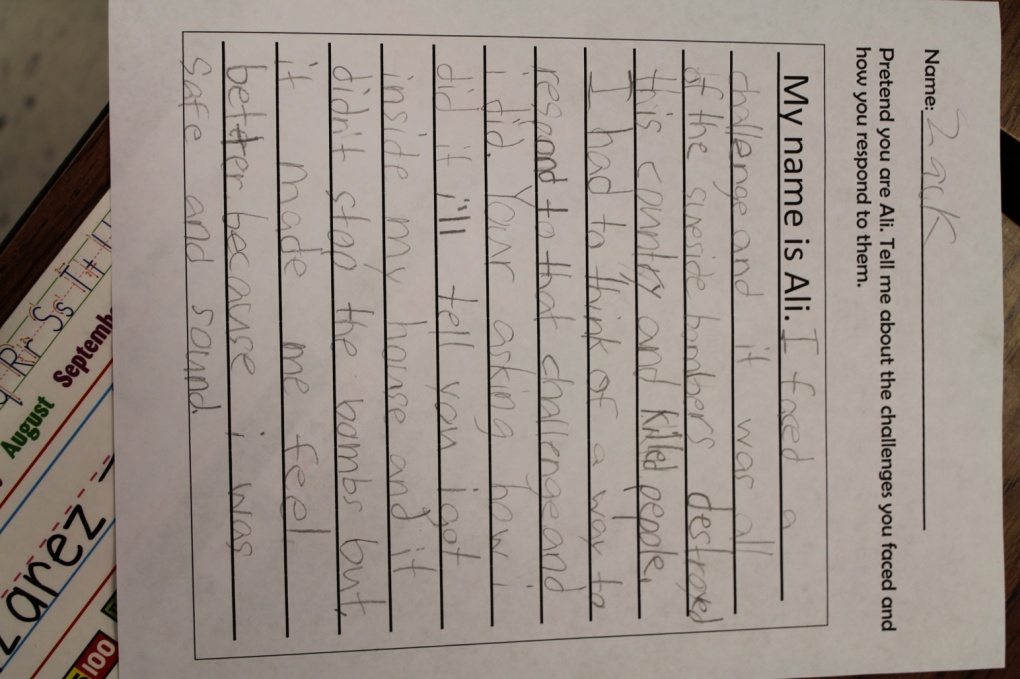 Name: Zack
Pretend you are Ali. Tell me about the challenges you faced and
how you respond to them.
My name is Ali. I faced a
challenge and it was all
of the sineside bombers destroyed
this country and killed people.
I had to think of a way to
respond to that challenge and
i did. Your asking how i
did it i'll tell you i got
inside my house and it
didn't stop the bombs but,
it made me feel
better because i was
safe and sound.
Rr Ss Tt
August
Septemb
arez
100